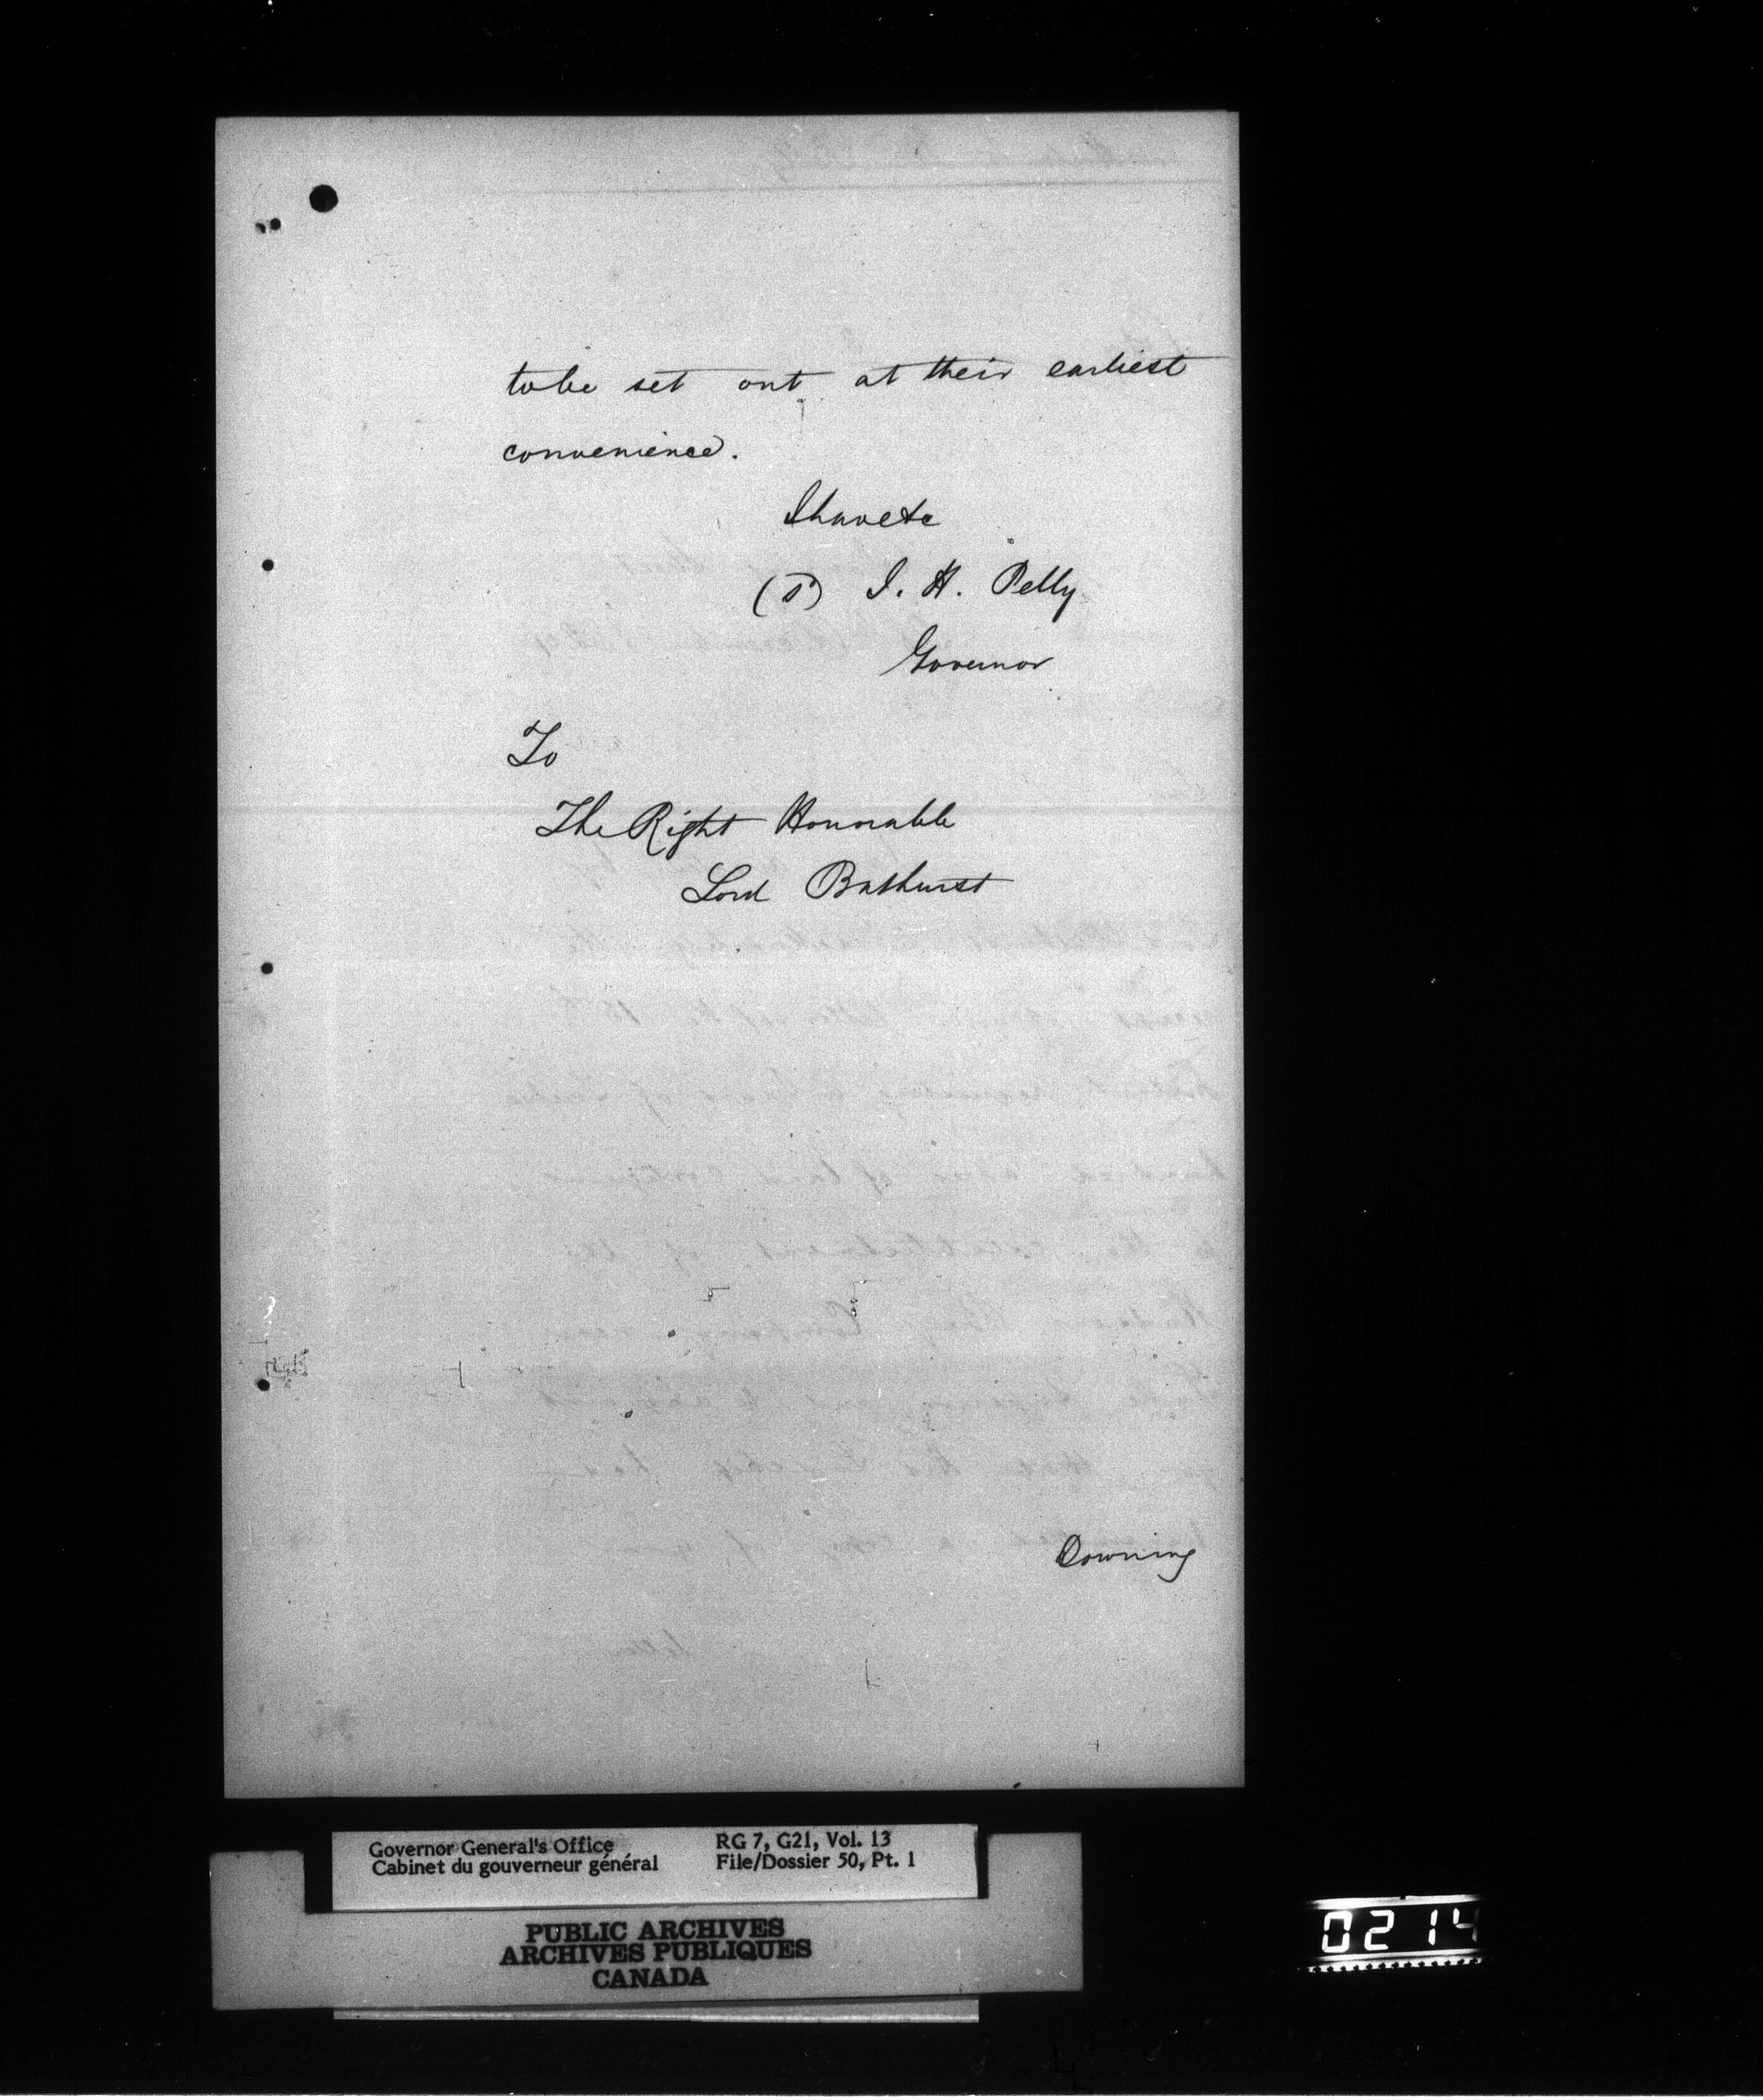 to be set out at their earliest
convenience.
I have &c
(S) J. H. Pelly
Governor
To
The Right Honorable
Lord Bathurst
Downing
Governor General's Office
Cabinet du gouverneur général
RG 7, G21, Vol. 13
File/Dossier 50, Pt. 1
PUBLIC ARCHIVES
ARCHIVES PUBLIQUES
CANADA
0214